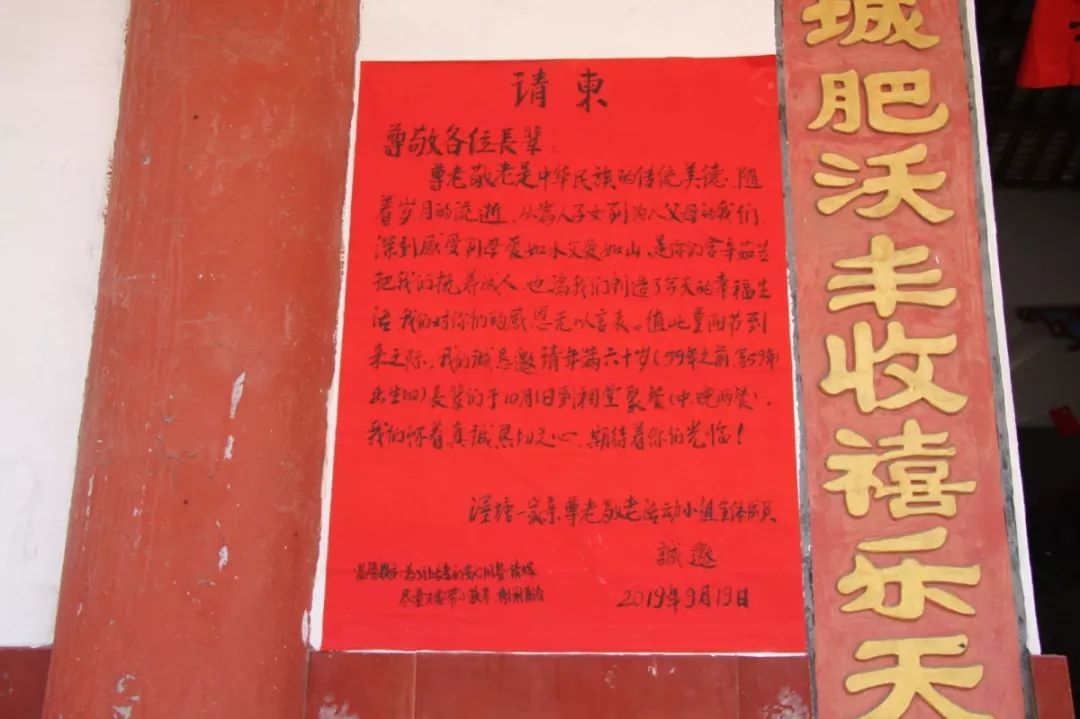 请柬
尊敬各位長辈：
尊老敬老是中华民族的传统美德.随
着岁月的流逝、从為人子女到为人父母的我们,
深刻感受到母爱如水父爱如山,是你们含辛茹苦
把我们抚养成人、也為我们创造了今天的幸福生
活 我们对你们的感恩无以言表。值此重阳节到
来之际、我们诚意邀请年满六十岁(59年之前,含59年
出生的)長辈们于10月1日到祠堂聚餐(中.晚两餐).
我们怀着真誠恳切之心、期待着你们光临！
塘一家亲尊老敬老活动小组全体成员
誠邀
2019年9月19日
温馨提示:為了让長者们安心用餐 请
尽量不要带小孩来 谢谢配合
城肥沃丰收禧乐天